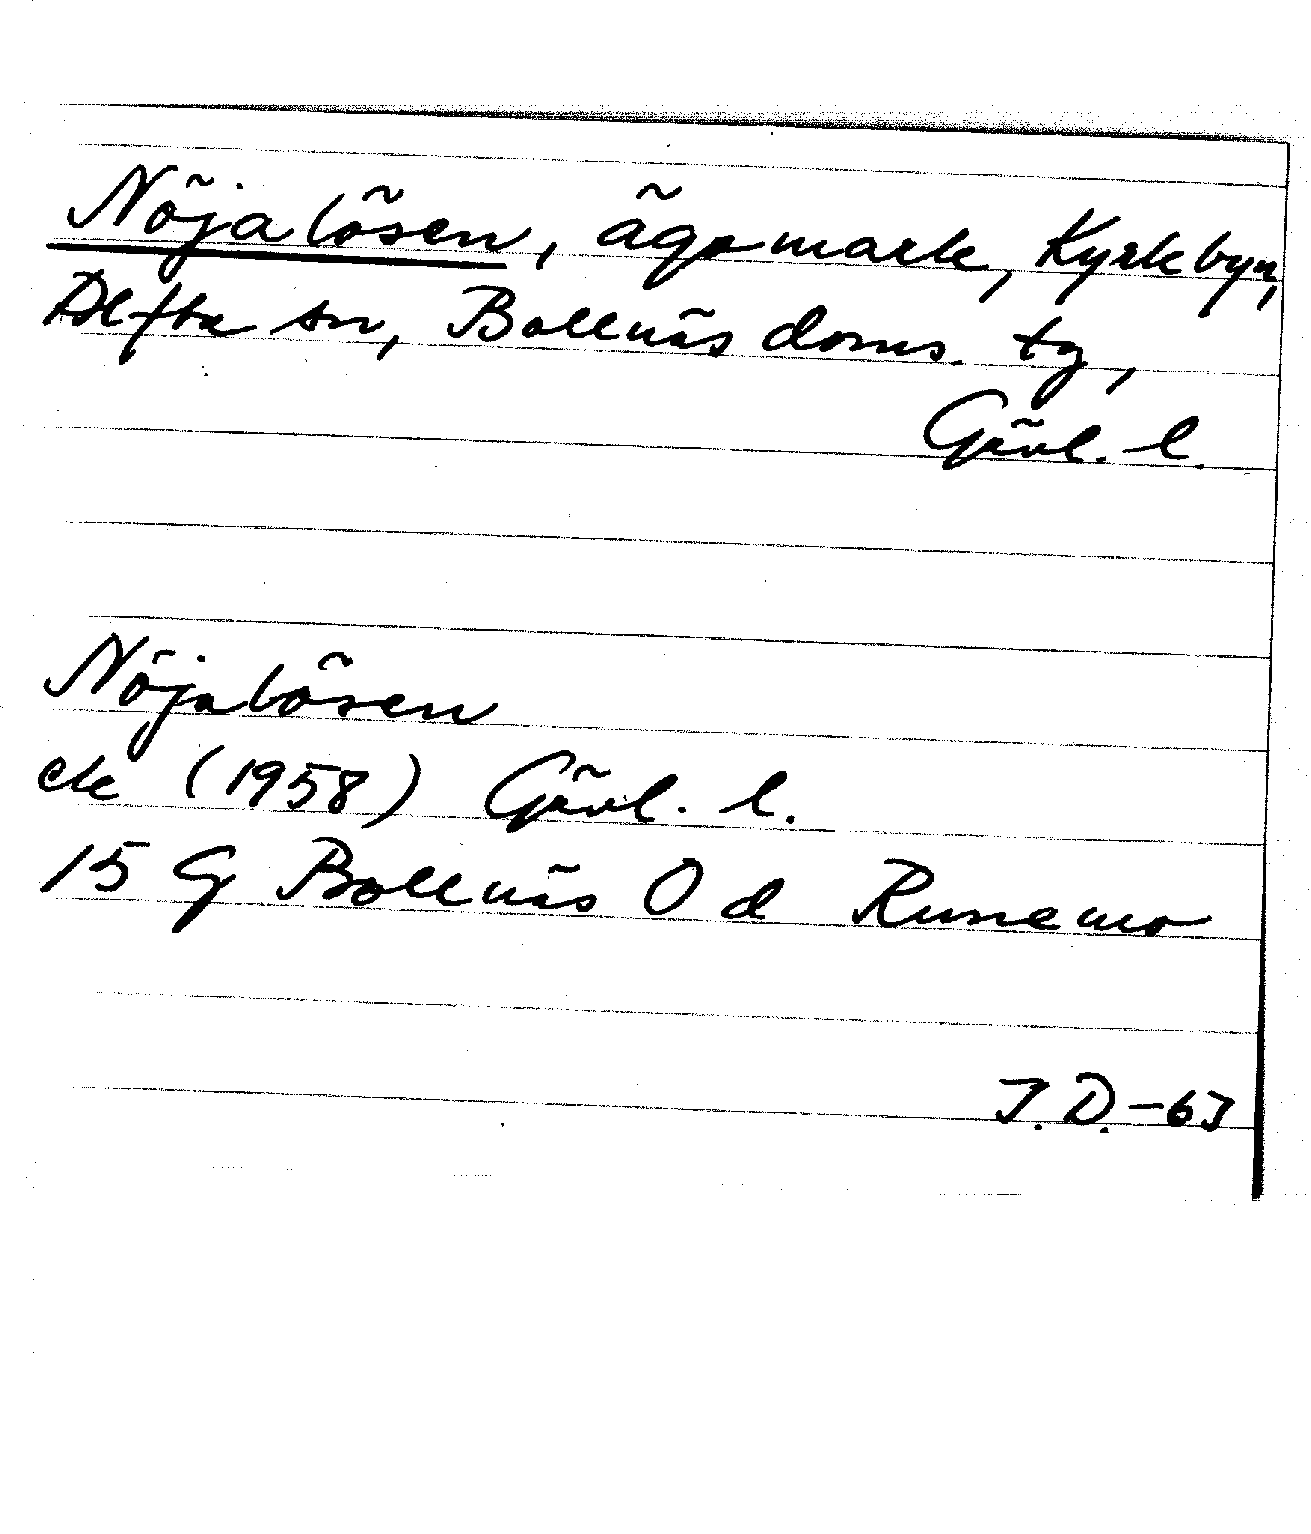 Nöjalösen, ägomark, Kyrkbyn,
Alfta sn, Bollnäs doms. tg,
Gävl. l.
Nöjalösen
ek (1958) Gävl. l.
15 G Bollnäs O d Runemo
J. D. -63